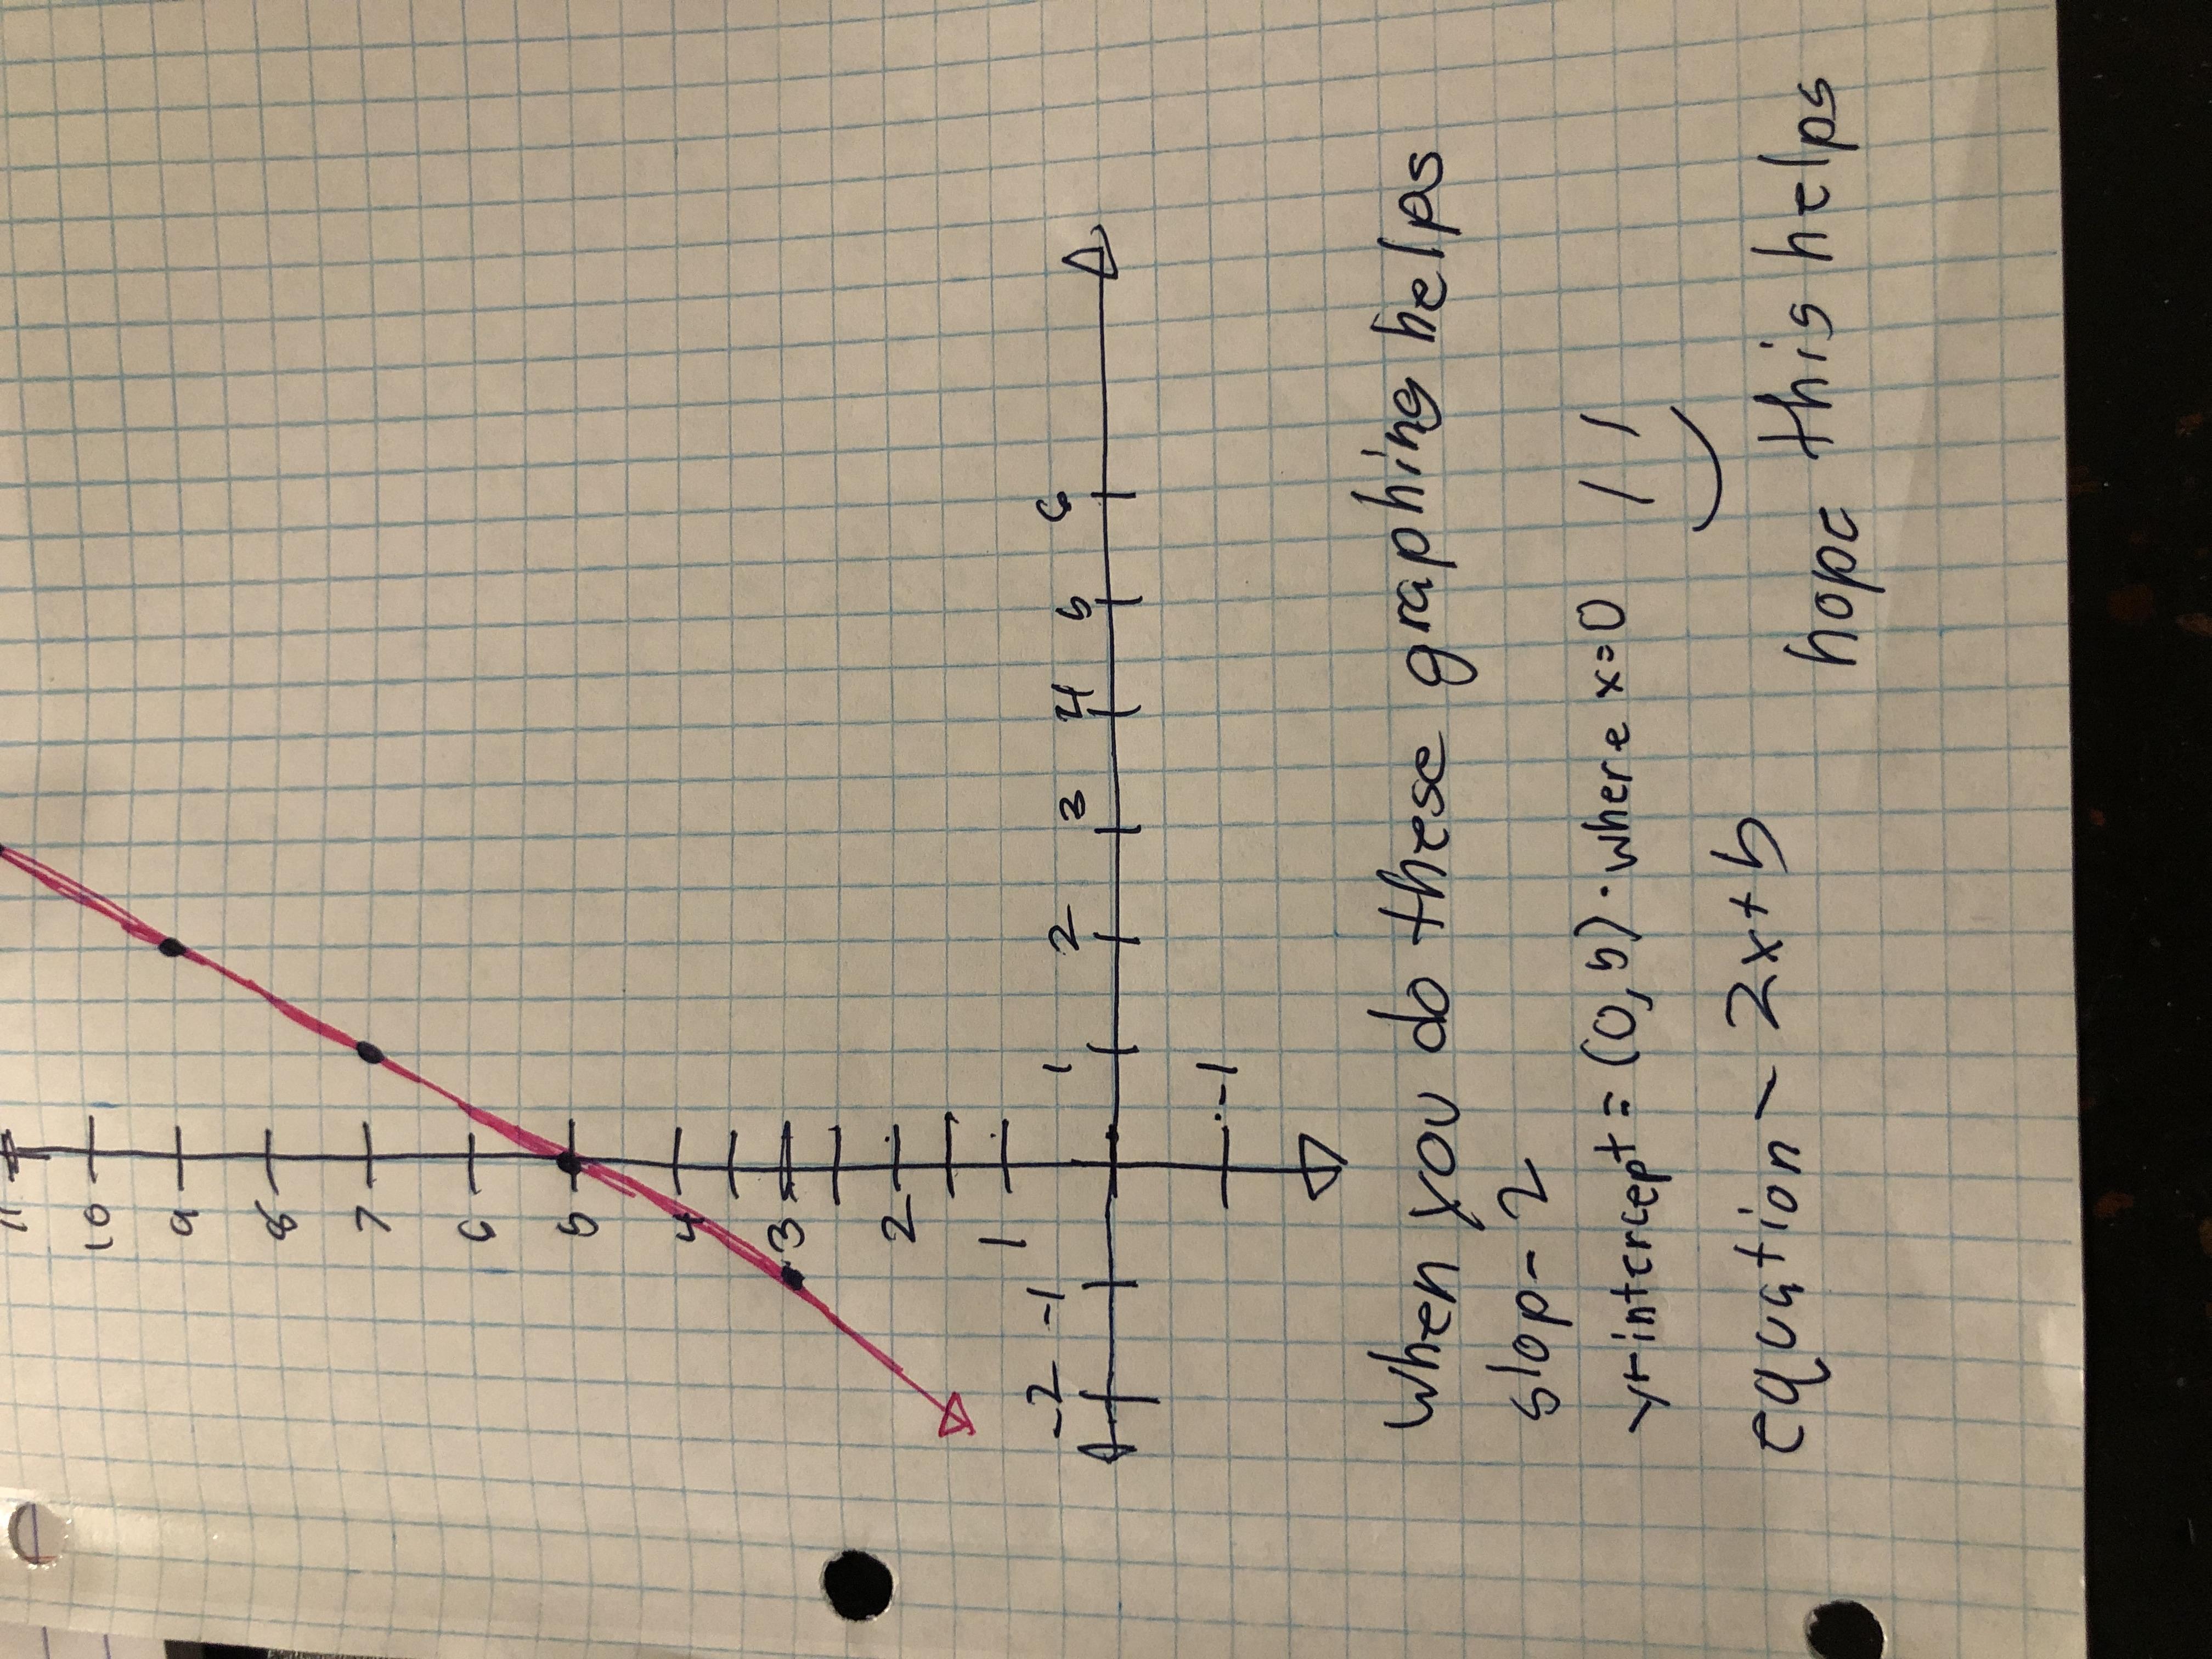 11
10
9
8
7
6
5
4
3
2
1
-2 -1 1 2 3 4 5 6
-1
When you do these graphing helps
slop- 2
y-intercept = (0,5) · where x=0
equation - 2x+5
hope this helps